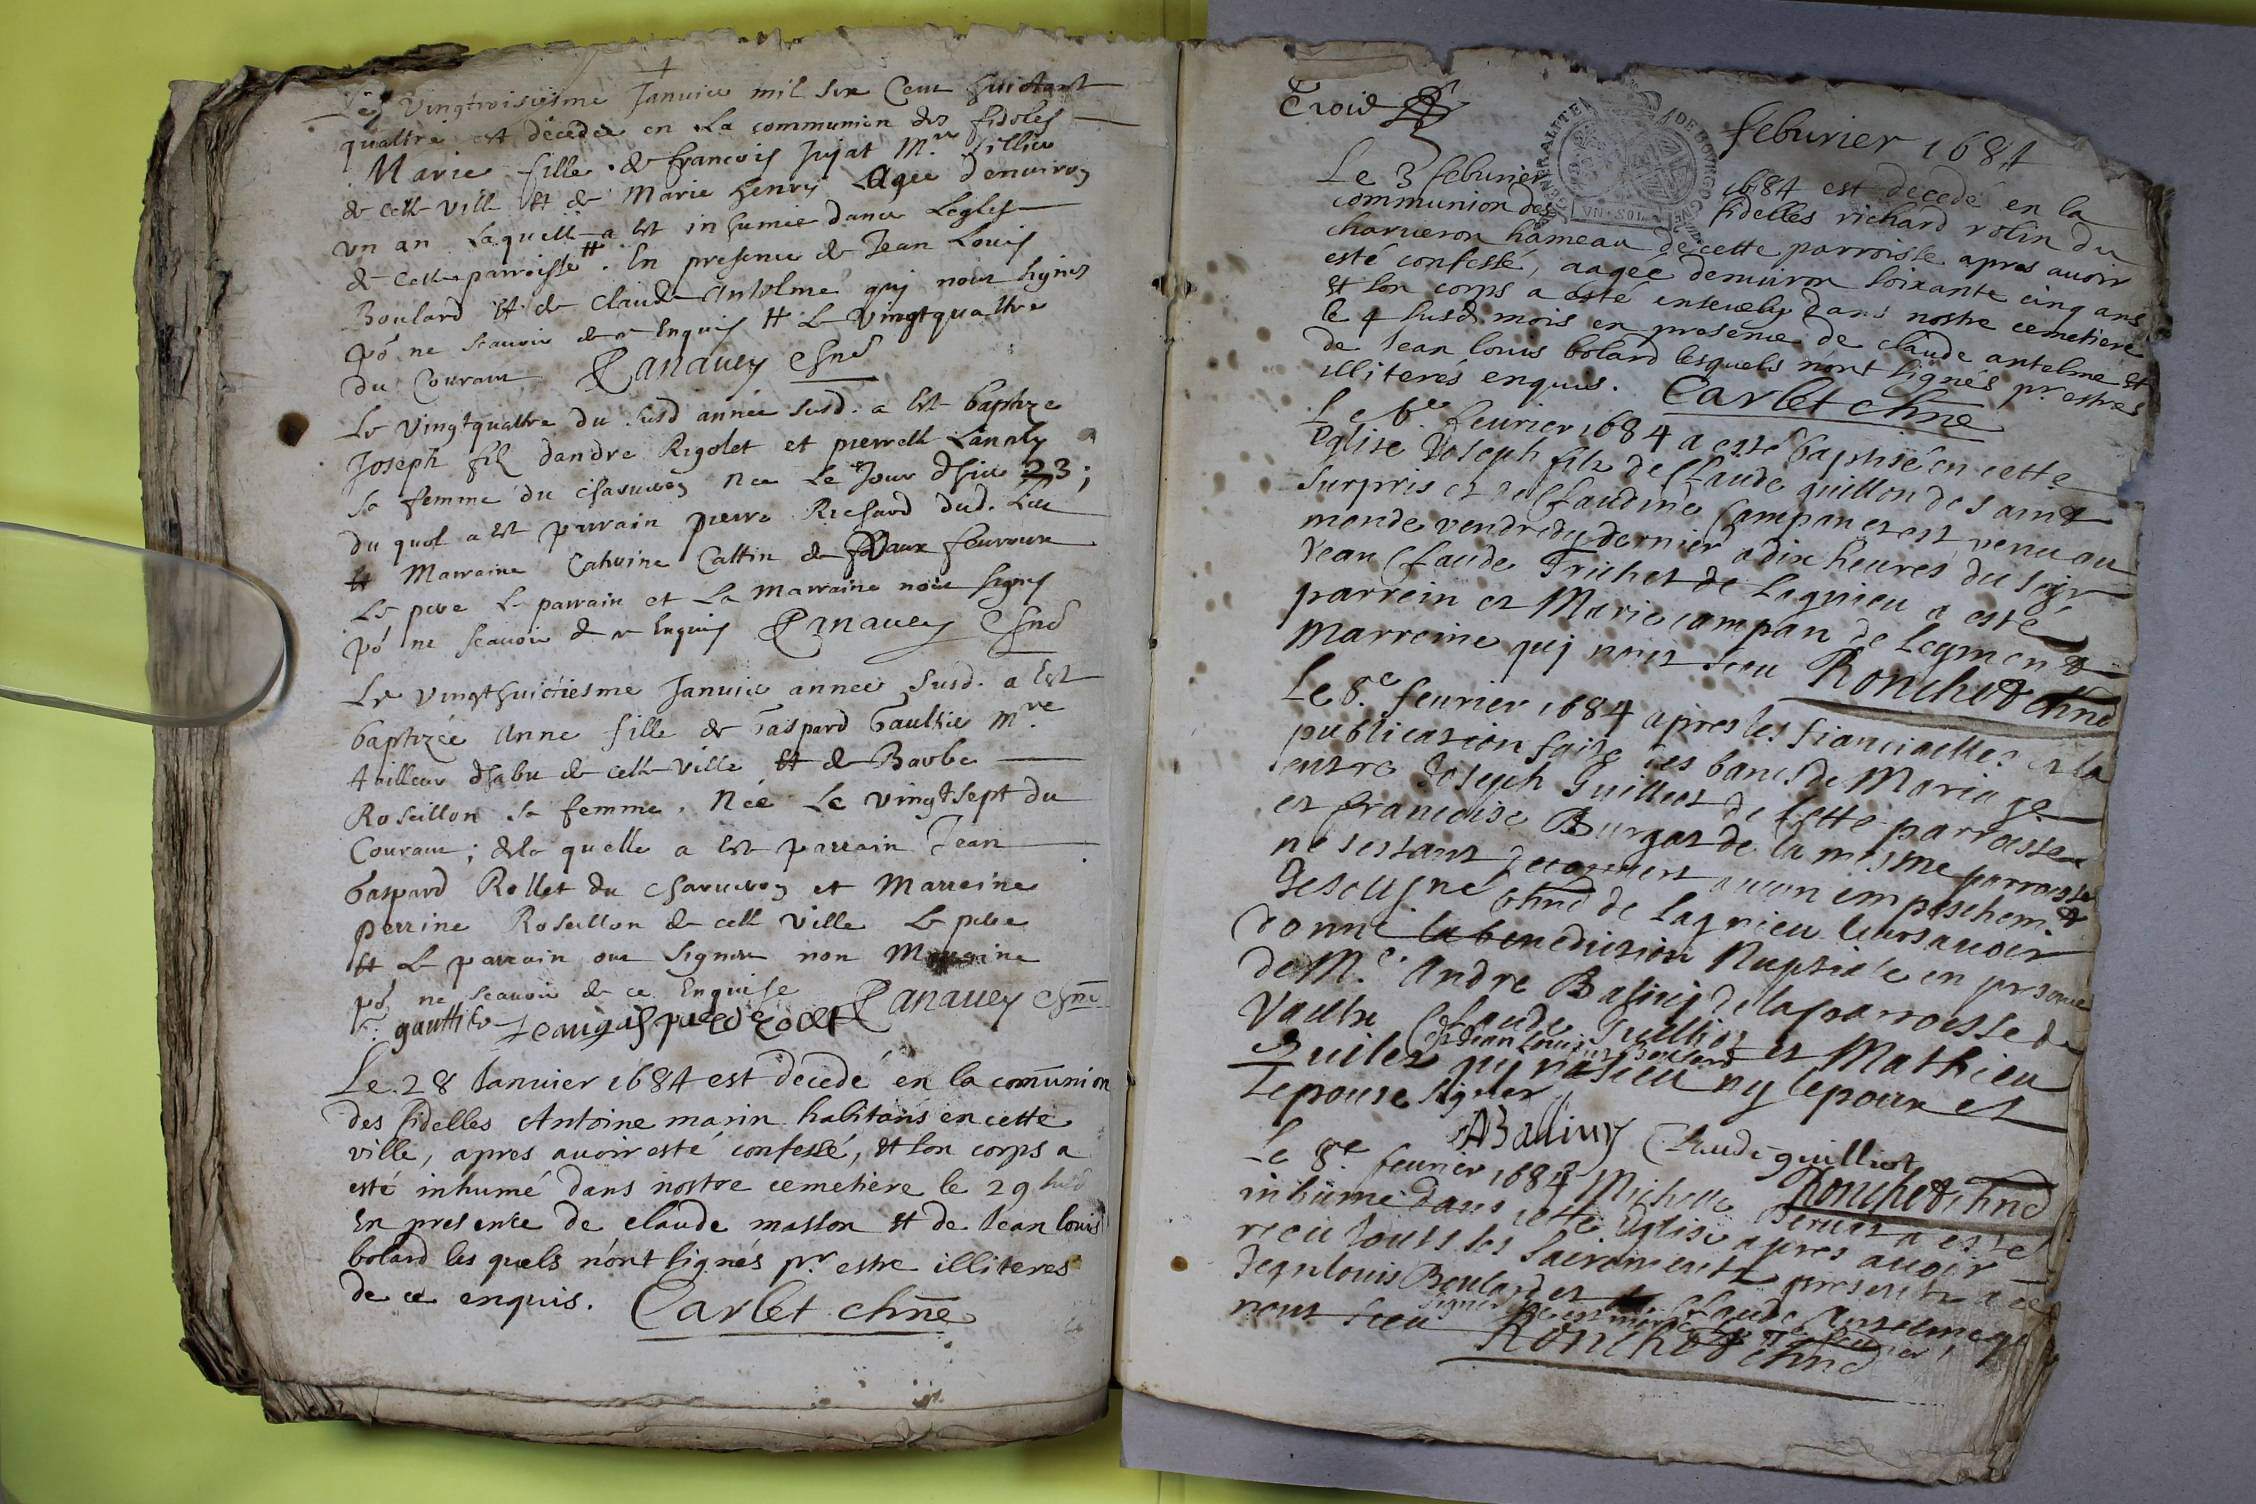 Le Vingtroisiesme Januier mil six Cent huictant
quattre est decedée en La communion des fidoles
Marie fille de francois Jujat M.re
de cette ville et de Marie henry Agée d'enuiron
vn an Laquelle a est inhumée dans Leglise
de cette parroisse. En presence de Jean Louis
Boulard et de Claude Antelme qui nont signes
po.r ne scauoir de ce Enquis le vingtquattre
du Courant Panauey chne
Le vingtquattre du susd année susd. a est baptize
Joseph filz dandre Rigolet et pierrette
sa femme du charueron née Le Jour dhier 23;
du quel a est parrain pierre Richard dud. Lieu
et Marraine Caterine Cattin de Vaux
Le pere Le parrain et La marraine nont signes
po.r ne scauoir de ce Enquis Panauey chne
Le vingthuictiesme Januier annee susd. a est
baptizée Anne fille de Gaspard Gaultier m.re
tailleur dhabit de cette ville et de Barbe
Roseillon sa femme. Née Le vingtsept du
Courant; de la quelle a est parrain Jean
Gaspard Rollet du charueron et Marreine
perrine Roseillon de cette ville Le pere
et Le parrain ont signés non Marraine
po.r ne scauoir de ce Enquise Panauey chne
gauttier
Le 28 Januier 1684 est decedé en la com̃union
des fidelles Antoine marin habitans en cette
ville, apres auoir esté confessé, et son corps a
esté inhumé dans nostre cemetiere le 29 susd
En presence de claude masson et de Jean louis
bolard les quels n'ont signés pr. estre illiteres
de ce enquis. Carlet chñe
Troise
feburier 1684
Le 3 feburier 1684 est decedé en la
communion des fidelles richard rolin du
charueron hameau de cette parroisse apres auoir
esté confessé, aagée denuiron soixante cinq ans
et son corps a esté enseuely dans nostre cemetiere
le 4 susd. mois en presence de claude antelme et
de Jean louis bolard lesquels n'ont signés pr. estres
illiterés enquis. Carlet chñe
Le 6.e feurier 1684 a esté baptisé en cette
Eglise Joseph fils de Claude guillon de saint
surpris et de Claudine Campan et est venu au
monde vendredy dernier a dix heures du soir
Jean Claude Trichet de Lagnieu a esté
parrein et Marie campan de Leyment
Marreine qui nont sceu Ronchet chne
Le 8.e feurier 1684 apres les fiancialles et la
publication faite des bans de Mariage
entre Joseph Guilliot de cette parroesse
et francoise Burgat de la mesme parroesse
ne sestant decouuert aucun empeschem.t
Je soussigné chne de Lagnieu leurs auoir
donné la benediction Nuptiale en presence
de M.e Andre Baliuy de la parroesse de
Vaulx Claude Guilliot et Mathieu
et Jean Louis Boulard
quilez qui n'a sceu ny lepoux et
Lepouse signer
ABalliuy Claude guilliot
Ronchet chne
Le 8.e feurier 1684 Michelle a esté
inhumé dans cette Eglise apres auoir
receu touts les sacrements presents a ce
Jean louis Boulard et Claude Antelme qui
nont sceu signer
Ronchet chne